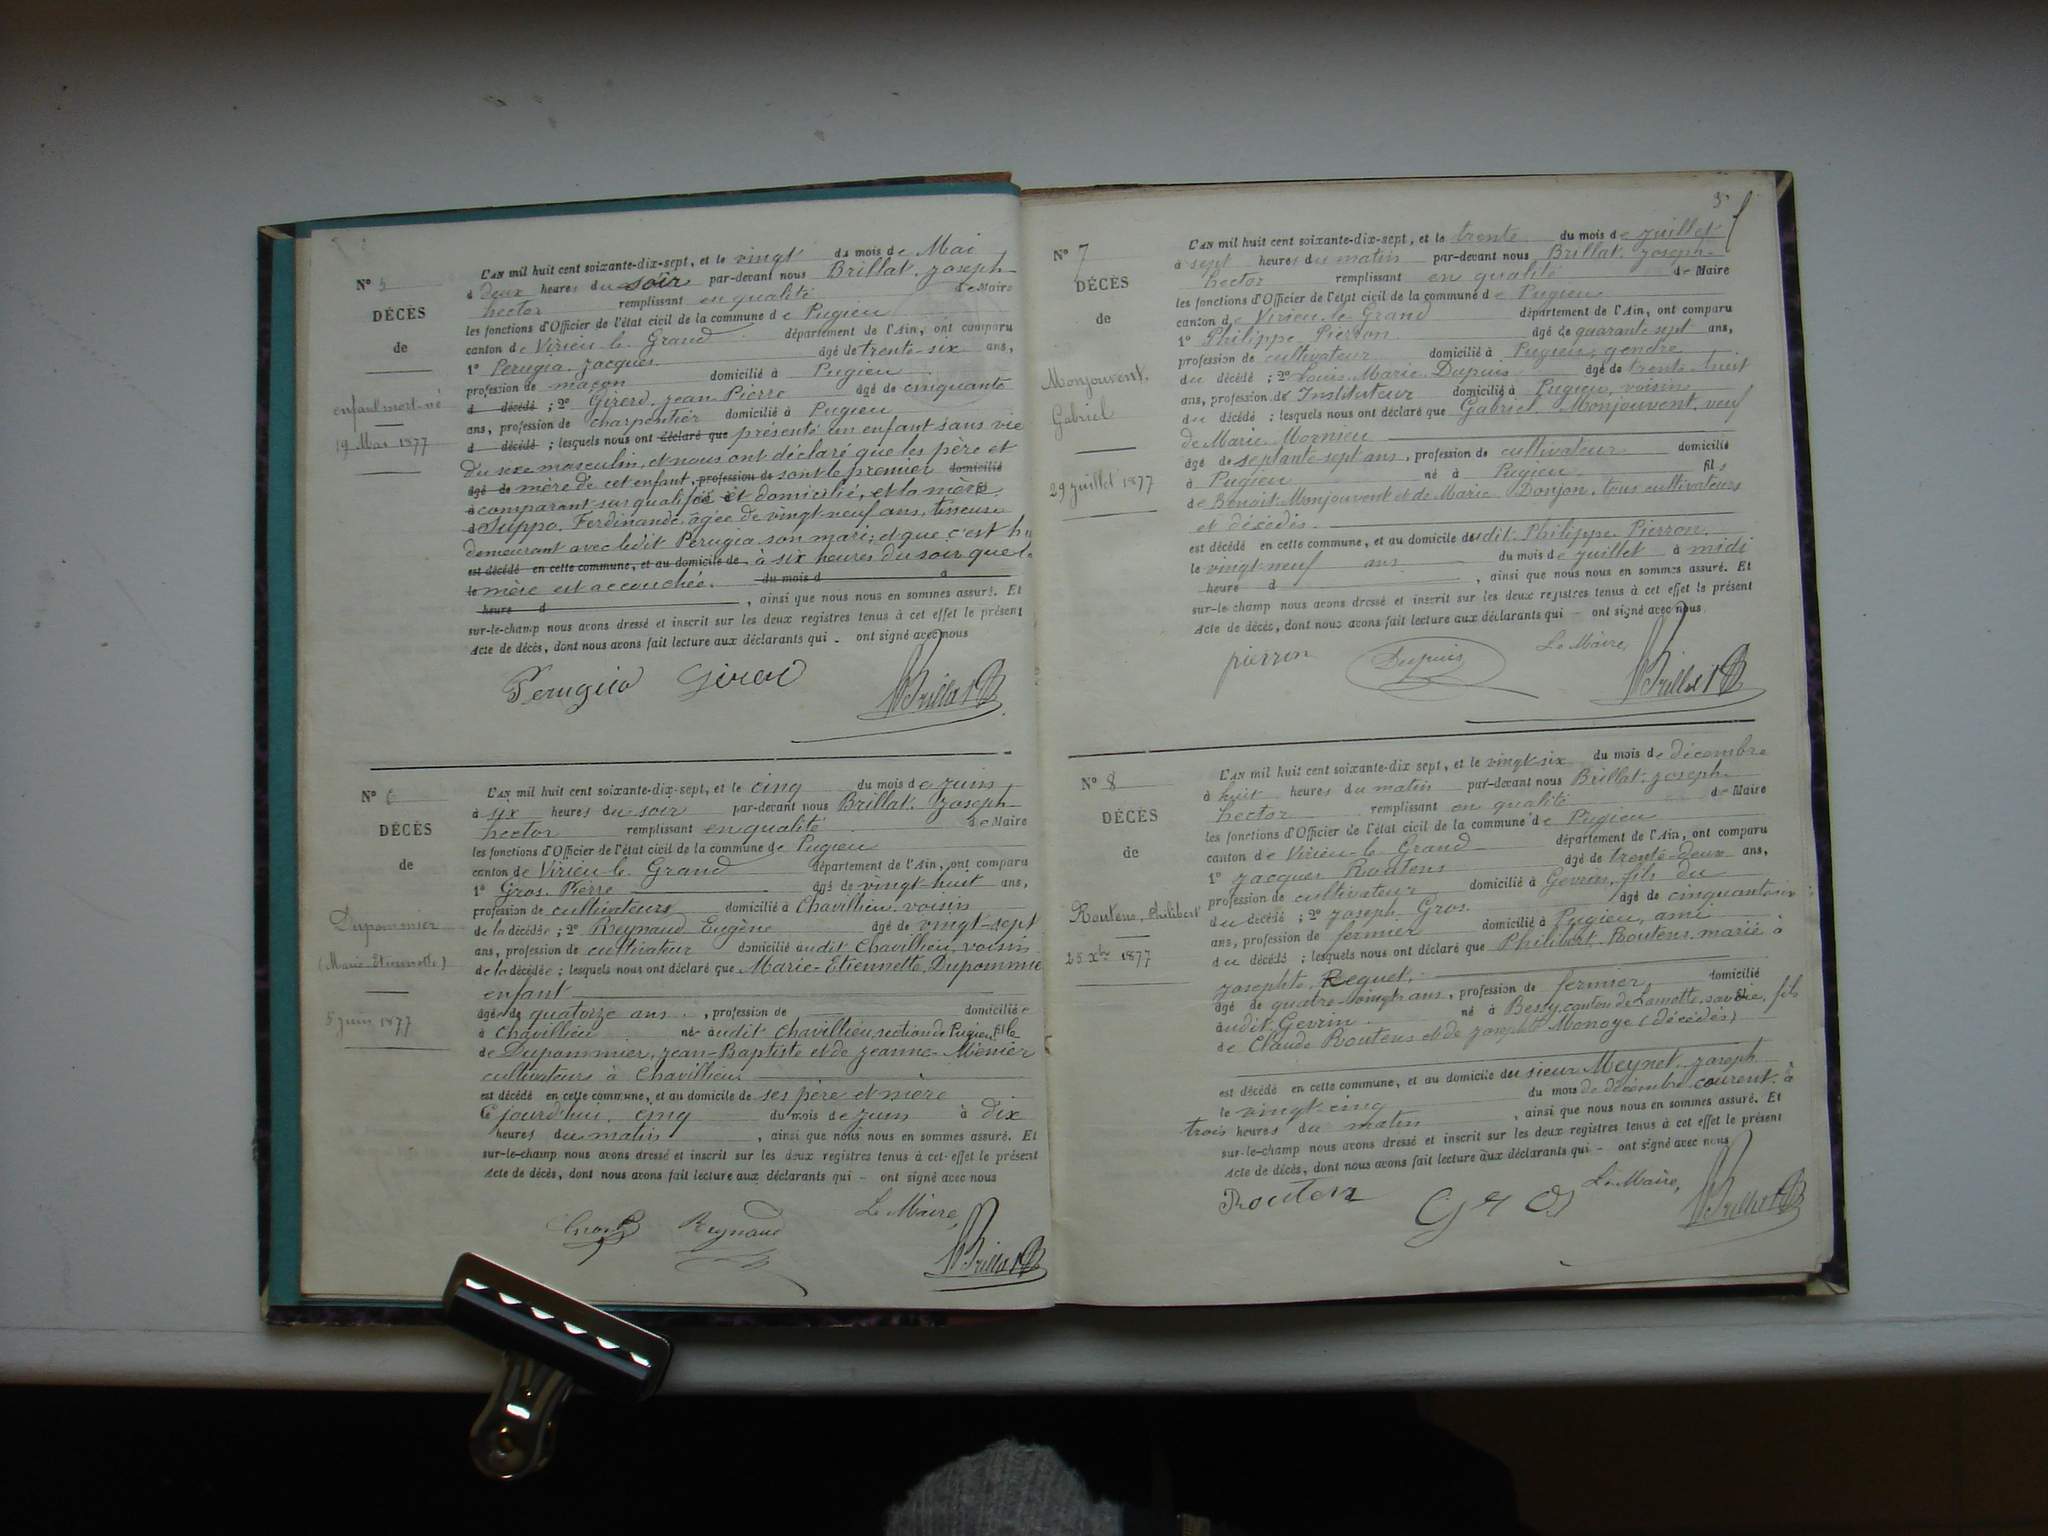 N° 5
DÉCÈS
de
enfant mort-né
19 Mai 1877
L'AN mil huit cent soixante-dix-sept, et le vingt du mois de Mai
à deux heures du soir par-devant nous Brillat, Joseph
hector remplissant en qualité de Maire
les fonctions d'Officier de l'état civil de la commune de Pugieu
canton de Virieu-le-Grand département de l'Ain, ont comparu
1° Perugia, Jacques âgé de trente-six ans,
profession de maçon domicilié à Pugieu
d décédé ; 2° Girerd, Jean Pierre âgé de cinquante
ans, profession de charpentier domicilié à Pugieu
d décédé ; lesquels nous ont déclaré que présenté un enfant sans vie
du sexe masculin, et nous ont déclaré que les père et
âgé de mère de cet enfant, profession de sont le premier domicilié
à comparant sus qualifié et domicilié, et la mère
d Suppo, Ferdinande, âgée de vingt-neuf ans, tisseuse
demeurant avec ledit Perugia son mari; et que c'est hier
est décédé en cette commune, et au domicile de à six heures du soir que la
le mère est accouchée. du mois d à
heure d , ainsi que nous nous en sommes assuré. Et
sur-le-champ nous avons dressé et inscrit sur les deux registres tenus à cet effet le présent
Acte de décès, dont nous avons fait lecture aux déclarants qui - ont signé avec nous
Perugia Girerd Brillat
N° 6
DÉCÈS
de
Dupommier
(Marie-Etiennette)
5 Juin 1877
L'AN mil huit cent soixante-dix-sept, et le cinq du mois de Juin
à six heures du soir par-devant nous Brillat, Joseph
hector remplissant en qualité de Maire
les fonctions d'Officier de l'état civil de la commune de Pugieu
canton de Virieu-le-Grand département de l'Ain, ont comparu
1° Gros, Pierre âgé de vingt-huit ans,
profession de cultivateurs domicilié à Chavillieu, voisin
de la décédée ; 2° Reynaud Eugène âgé de vingt-sept
ans, profession de cultivateur domicilié audit Chavillieu, voisin
de la décédée ; lesquels nous ont déclaré que Marie-Etiennette, Dupommier
enfant
âgée de quatorze ans , profession de domiciliée
à Chavillieu née audit Chavillieu, section de Pugieu, fille
de Dupommier, Jean-Baptiste et de Jeanne Menier
cultivateurs à Chavillieu
est décédé en cette commune, et au domicile de ses père et mère
Ce jourd'hui, cinq du mois de Juin à dix
heures du matin , ainsi que nous nous en sommes assuré. Et
sur-le-champ nous avons dressé et inscrit sur les deux registres tenus à cet effet le présent
Acte de décès, dont nous avons fait lecture aux déclarants qui - ont signé avec nous
Le Maire,
Gros Reynaud Brillat
3
N° 7
DÉCÈS
de
Monjouvent,
Gabriel
29 Juillet 1877
L'AN mil huit cent soixante-dix-sept, et le trente du mois de Juillet
à sept heures du matin par-devant nous Brillat, Joseph
hector remplissant en qualité de Maire
les fonctions d'Officier de l'état civil de la commune de Pugieu
canton de Virieu-le-Grand département de l'Ain, ont comparu
1° Philippe, Pierron âgé de quarante sept ans,
profession de cultivateur domicilié à Pugieu, gendre
du décédé ; 2° Louis, Marie, Dupuis âgé de trente-huit
ans, profession de Instituteur domicilié à Pugieu, voisin
du décédé ; lesquels nous ont déclaré que Gabriel, Monjouvent, veuf
de Marie Mornieu
âgé de septante-sept ans, profession de cultivateur domicilié
à Pugieu né à Pugieu fils
de Benoit Monjouvent et de Marie Donjon, tous cultivateurs
et décédés
est décédé en cette commune, et au domicile dudit Philippe Pierron
le vingt-neuf ans du mois de Juillet à midi
heure d , ainsi que nous nous en sommes assuré. Et
sur-le-champ nous avons dressé et inscrit sur les deux registres tenus à cet effet le présent
Acte de décès, dont nous avons fait lecture aux déclarants qui - ont signé avec nous
Le Maire,
pierron Dupuis Brillat
N° 8
DÉCÈS
de
Routens, Philibert
25 Xbre 1877
L'AN mil huit cent soixante-dix-sept, et le vingt-six du mois de décembre
à huit heures du matin par-devant nous Brillat, Joseph
hector remplissant en qualité de Maire
les fonctions d'Officier de l'état civil de la commune de Pugieu
canton de Virieu-le-Grand département de l'Ain, ont comparu
1° Jacques Routens âgé de trente-deux ans,
profession de cultivateur domicilié à Gevrin, fils du
du décédé ; 2° Joseph, Gros. âgé de cinquante-six
ans, profession de fermier domicilié à Pugieu, ami
du décédé ; lesquels nous ont déclaré que Philibert, Routens, marié à
Josephte, Reguet,
âgé de quatre-vingts ans, profession de fermier, domicilié
audit Gevrin né à Bessy, canton de Lamotte, savoie, fils
de Claude Routens et de Josephte Monoye (décédés)
est décédé en cette commune, et au domicile du sieur Meynet, Joseph
le vingt-cinq du mois de décembre courent, à
trois heures du matin , ainsi que nous nous en sommes assuré. Et
sur-le-champ nous avons dressé et inscrit sur les deux registres tenus à cet effet le présent
Acte de décès, dont nous avons fait lecture aux déclarants qui - ont signé avec nous
Le Maire,
Routens Gros Brillat